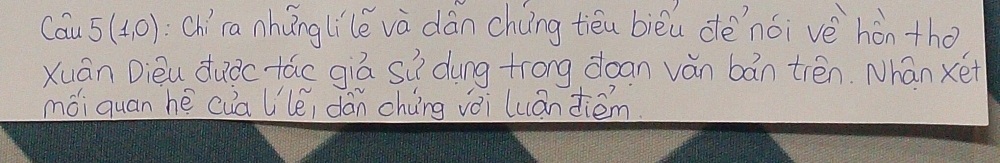 Câu 5 (1,0): Chỉ ra những lí lẽ và dẫn chứng tiêu biểu để nói về hồn thơ
Xuân Diệu được tác giả sử dụng trong đoạn văn bản trên. Nhận xét
mối quan hệ của lí lẽ, dẫn chứng với luận điểm.